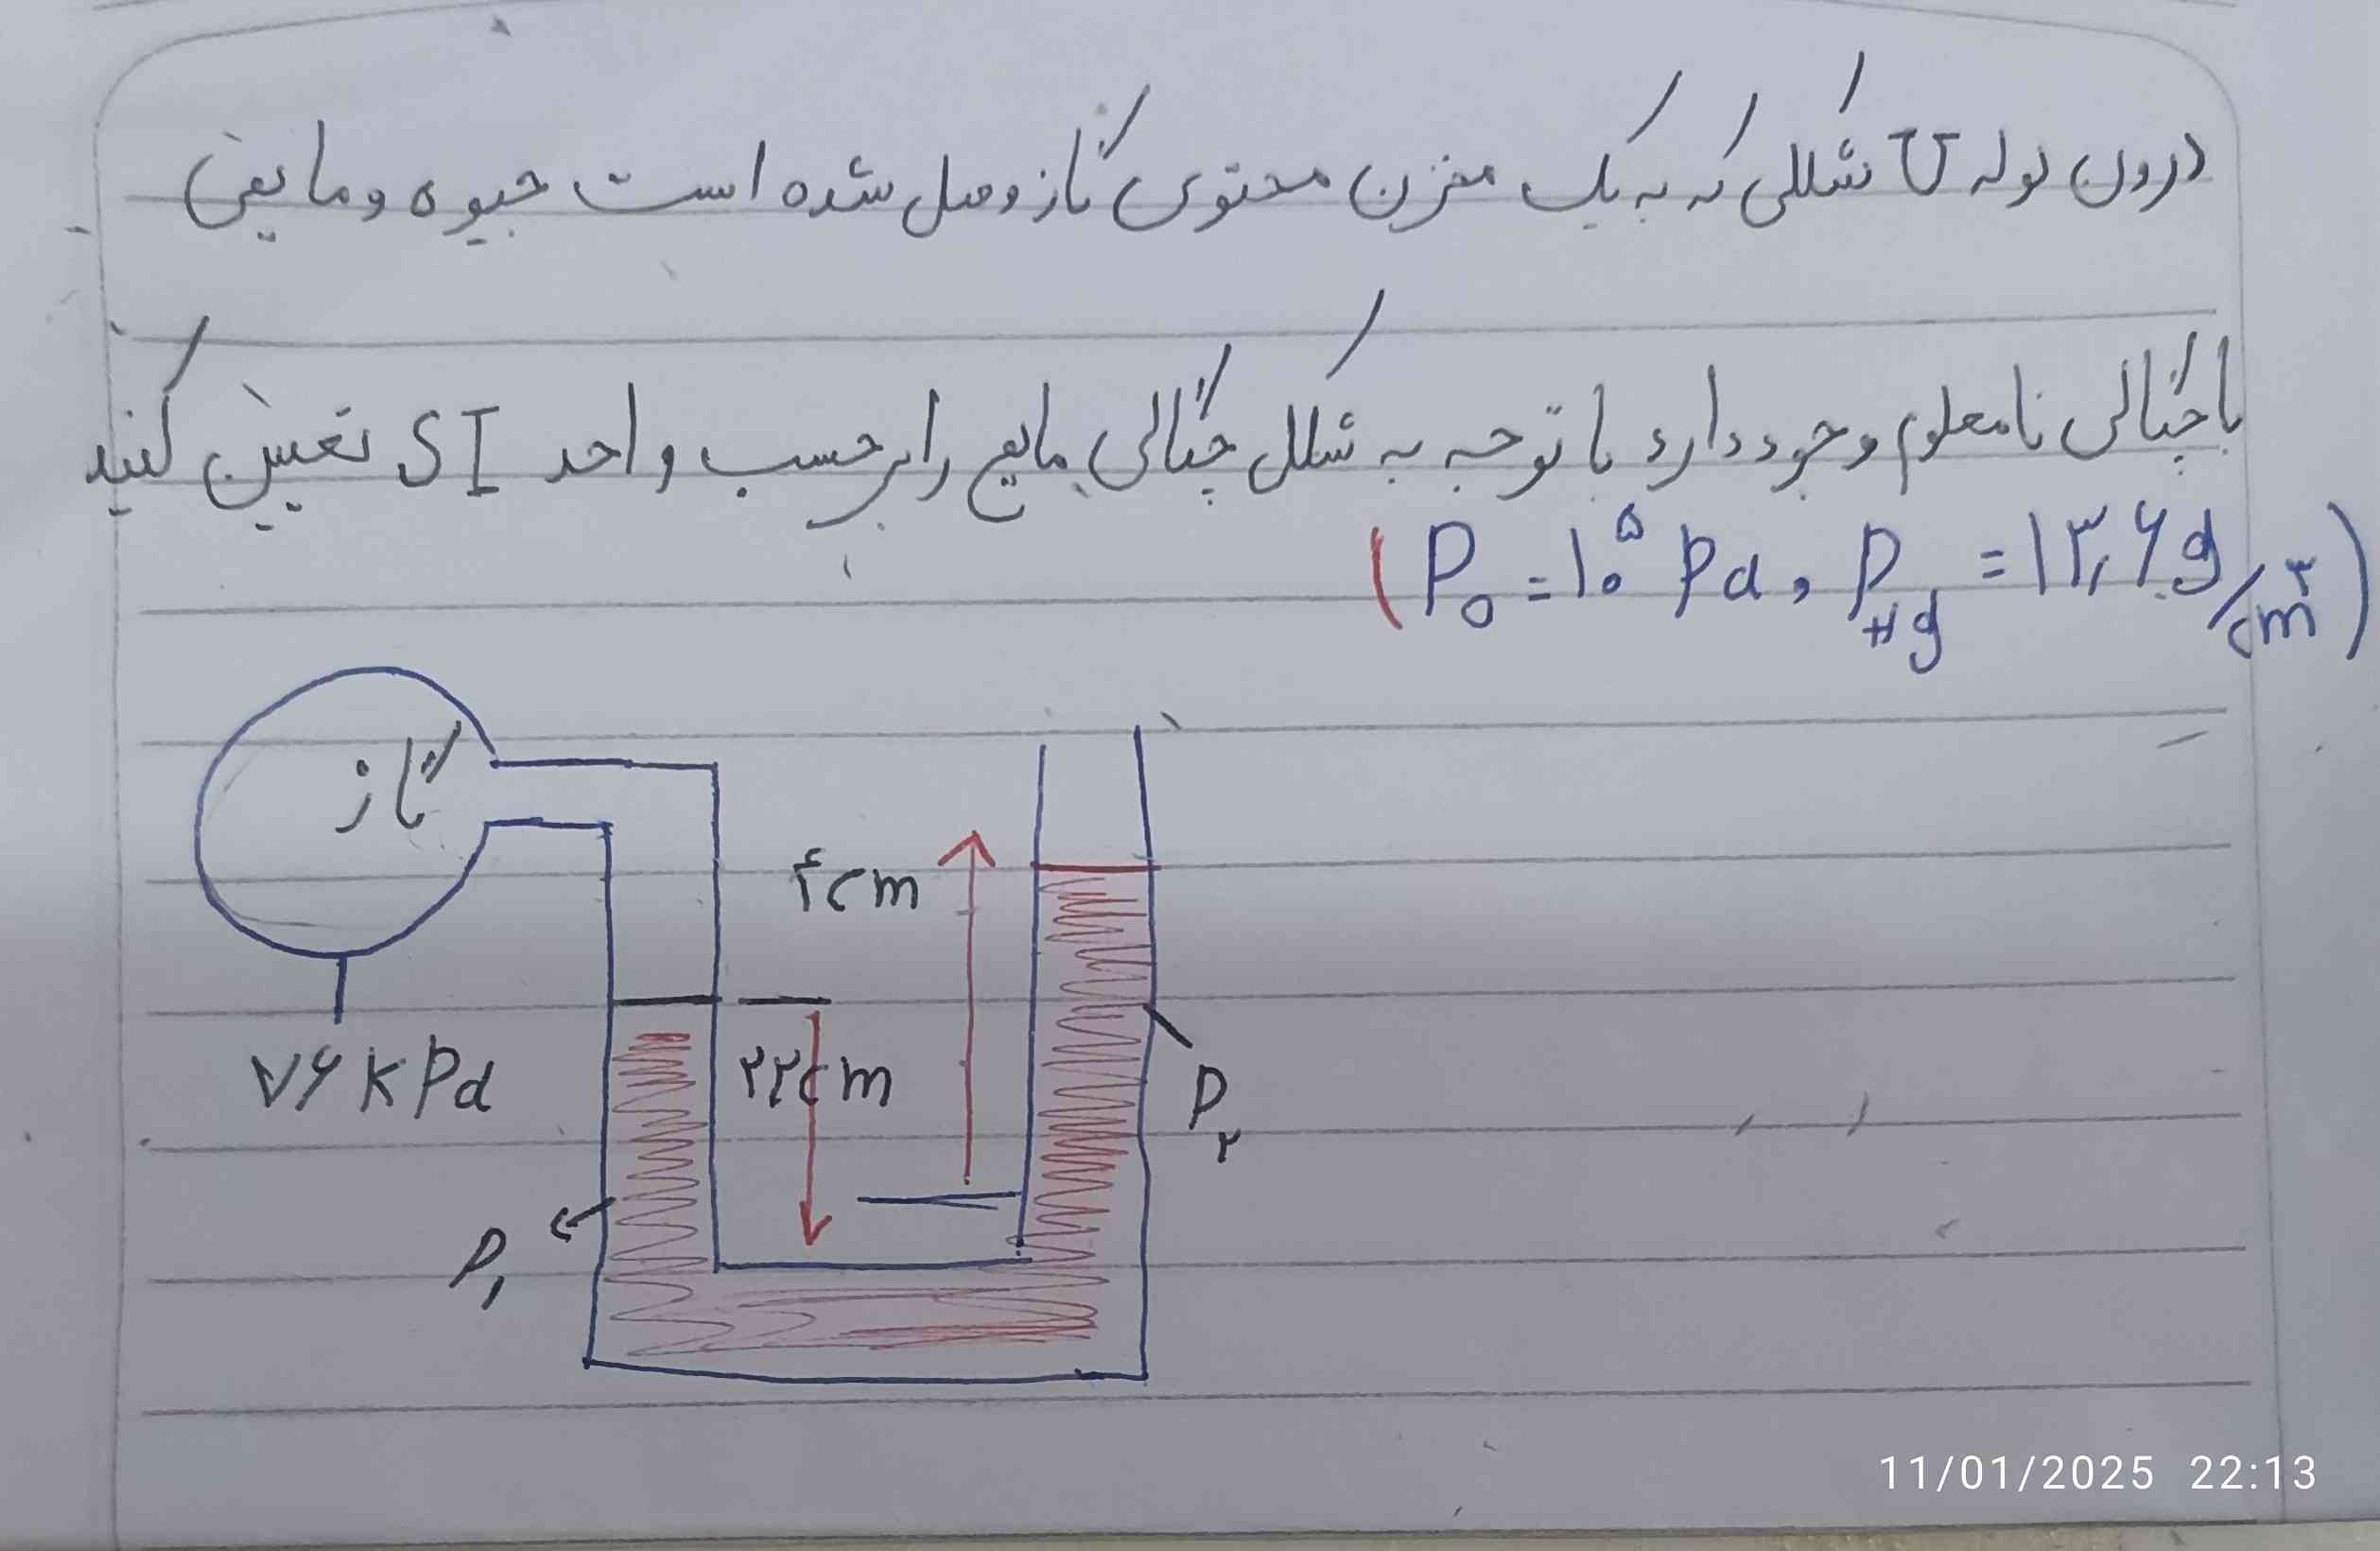 درون لوله U شکلی که به یک مخزن محتوی گاز وصل شده است جیوه و مایعی
با چگالی نامعلوم وجود دارد با توجه به شکل چگالی مایع را برحسب واحد SI تعیین کنید
(P₀ = ۱۰^۵ Pa, ρHg = ۱۳٫۶ g/cm^۳)
گاز
۴cm
۷۶ kPa
۲۲cm
ρ۲
ρ۱
11/01/2025 22:13